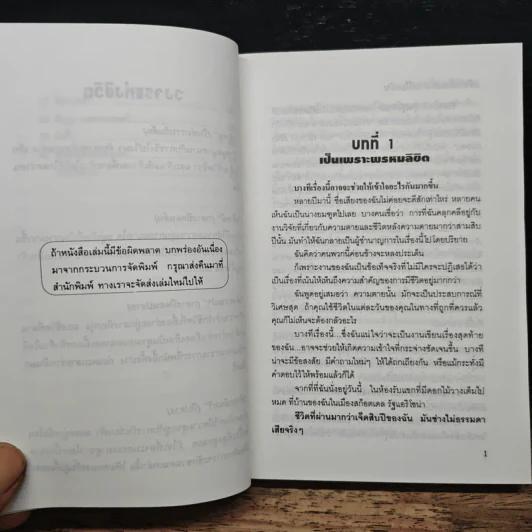 ถ้าหนังสือเล่มนี้มีข้อผิดพลาด บกพร่องอันเนื่อง
มาจากกระบวนการจัดพิมพ์ กรุณาส่งคืนมาที่
สำนักพิมพ์ ทางเราจะจัดส่งเล่มใหม่ไปให้
บทที่ 1
เป็นเพราะพรหมลิขิต
บางทีเรื่องนี้อาจจะช่วยให้เข้าใจอะไรกันมากขึ้น
หลายปีมานี้ ชื่อเสียงของฉันไม่ค่อยจะดีสักเท่าไหร่ หลายคน
เห็นฉันเป็นนางยมทูตไปเลย บางคนเชื่อว่า การที่ฉันคลุกคลีอยู่กับ
งานวิจัยที่เกี่ยวกับความตายและชีวิตหลังความตายมากว่าสามสิบ
ปีนั้น มันทำให้ฉันกลายเป็นผู้ชำนาญการในเรื่องนี้ไปโดยปริยาย
ฉันคิดว่าคนพวกนี้ค่อนข้างจะหลงประเด็น
ก็เพราะงานของฉันเป็นข้อเท็จจริงที่ไม่มีใครจะปฏิเสธได้ว่า
เป็นเรื่องที่เน้นให้เห็นถึงความสำคัญของการมีชีวิตอยู่มากกว่า
ฉันพูดอยู่เสมอว่า ความตายนั้น มักจะเป็นประสบการณ์ที่
วิเศษสุด ถ้าคุณใช้ชีวิตในแต่ละวันของคุณในทางที่ถูกที่ควรแล้ว
คุณก็ไม่เห็นจะต้องกลัวอะไร
บางทีเรื่องนี้...ซึ่งฉันแน่ใจว่าจะเป็นงานเขียนเรื่องสุดท้าย
ของฉัน...อาจจะช่วยให้เกิดความเข้าใจที่กระจ่างชัดเจนขึ้น บางที
น่าจะมีข้อสงสัย มีคำถามใหม่ๆ ให้ได้ถกเถียงกัน หรือแม้กระทั่งมี
คำตอบไว้ให้พร้อมแล้วก็ได้
จากที่ที่ฉันนั่งอยู่วันนี้ ในห้องรับแขกที่มีดอกไม้วางเต็มไป
หมด ที่บ้านของฉันในเมืองสก็อตเดล รัฐแอริโซน่า
ชีวิตที่ผ่านมากว่าเจ็ดสิบปีของฉัน มันช่างไม่ธรรมดา
เสียจริงๆ
1